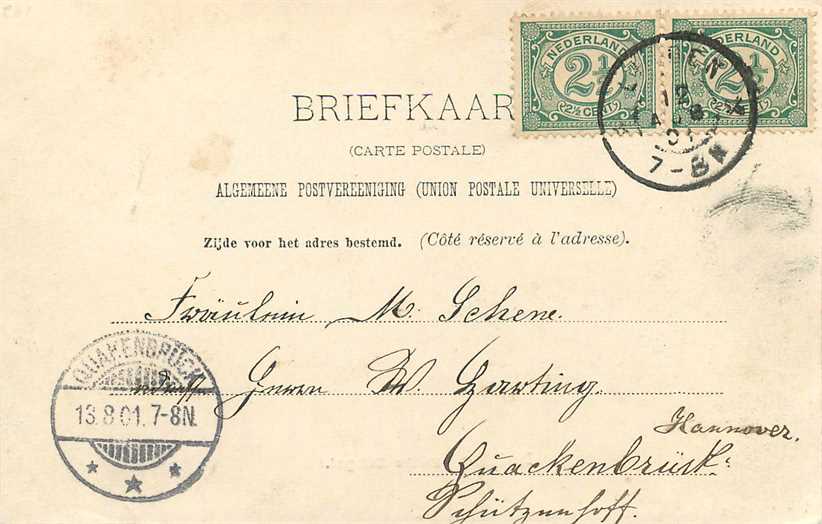 NEDERLAND NEDERLAND
2½ 2½
2½ CENT 2½ CENT
12
AUG
01
7-8N
BRIEFKAAR
(CARTE POSTALE)
ALGEMEENE POSTVEREENIGING (UNION POSTALE UNIVERSELLE)
Zijde voor het adres bestemd. (Côté réservé à l'adresse).
Fräulein M. Schene.
Herrn W. Harting.
Hannover.
Quackenbrück
Schützenhoff.
QUAKENBRÜCK
13.8.01.7-8N.